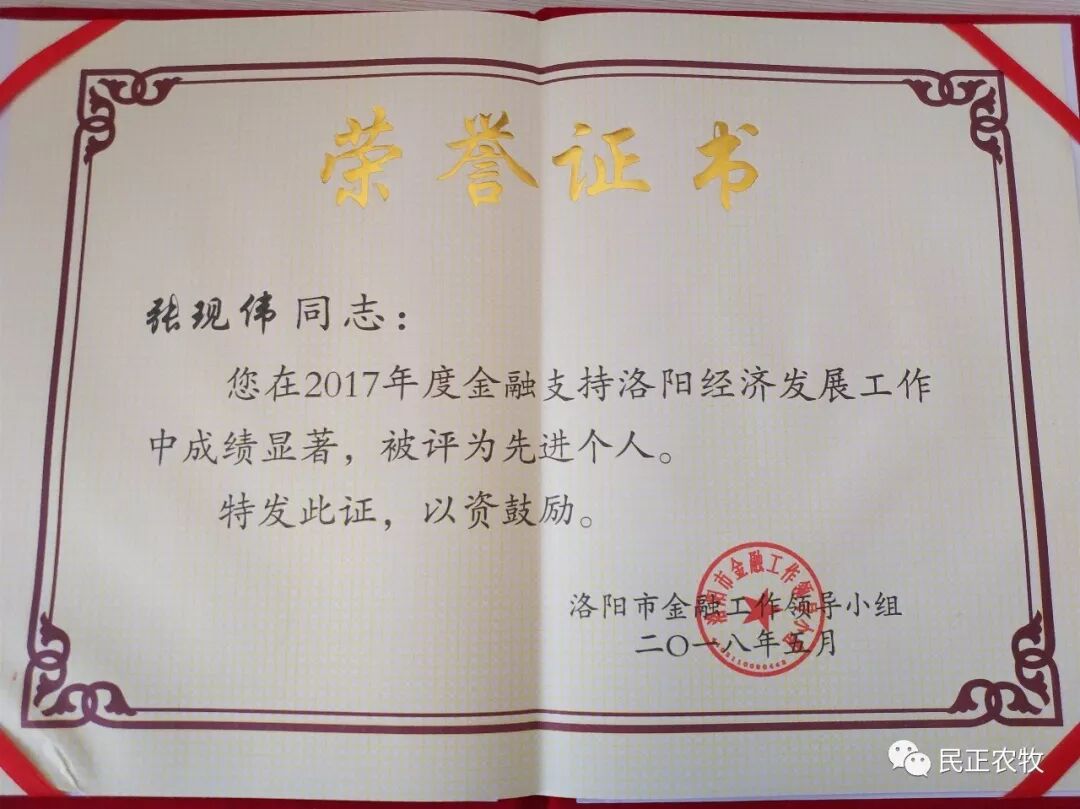 荣誉证书
张现伟同志：
您在2017年度金融支持洛阳经济发展工作
中成绩显著，被评为先进个人。
特发此证，以资鼓励。
洛阳市金融工作领导小组
二〇一八年五月
洛阳市金融工作领导小组
民正农牧